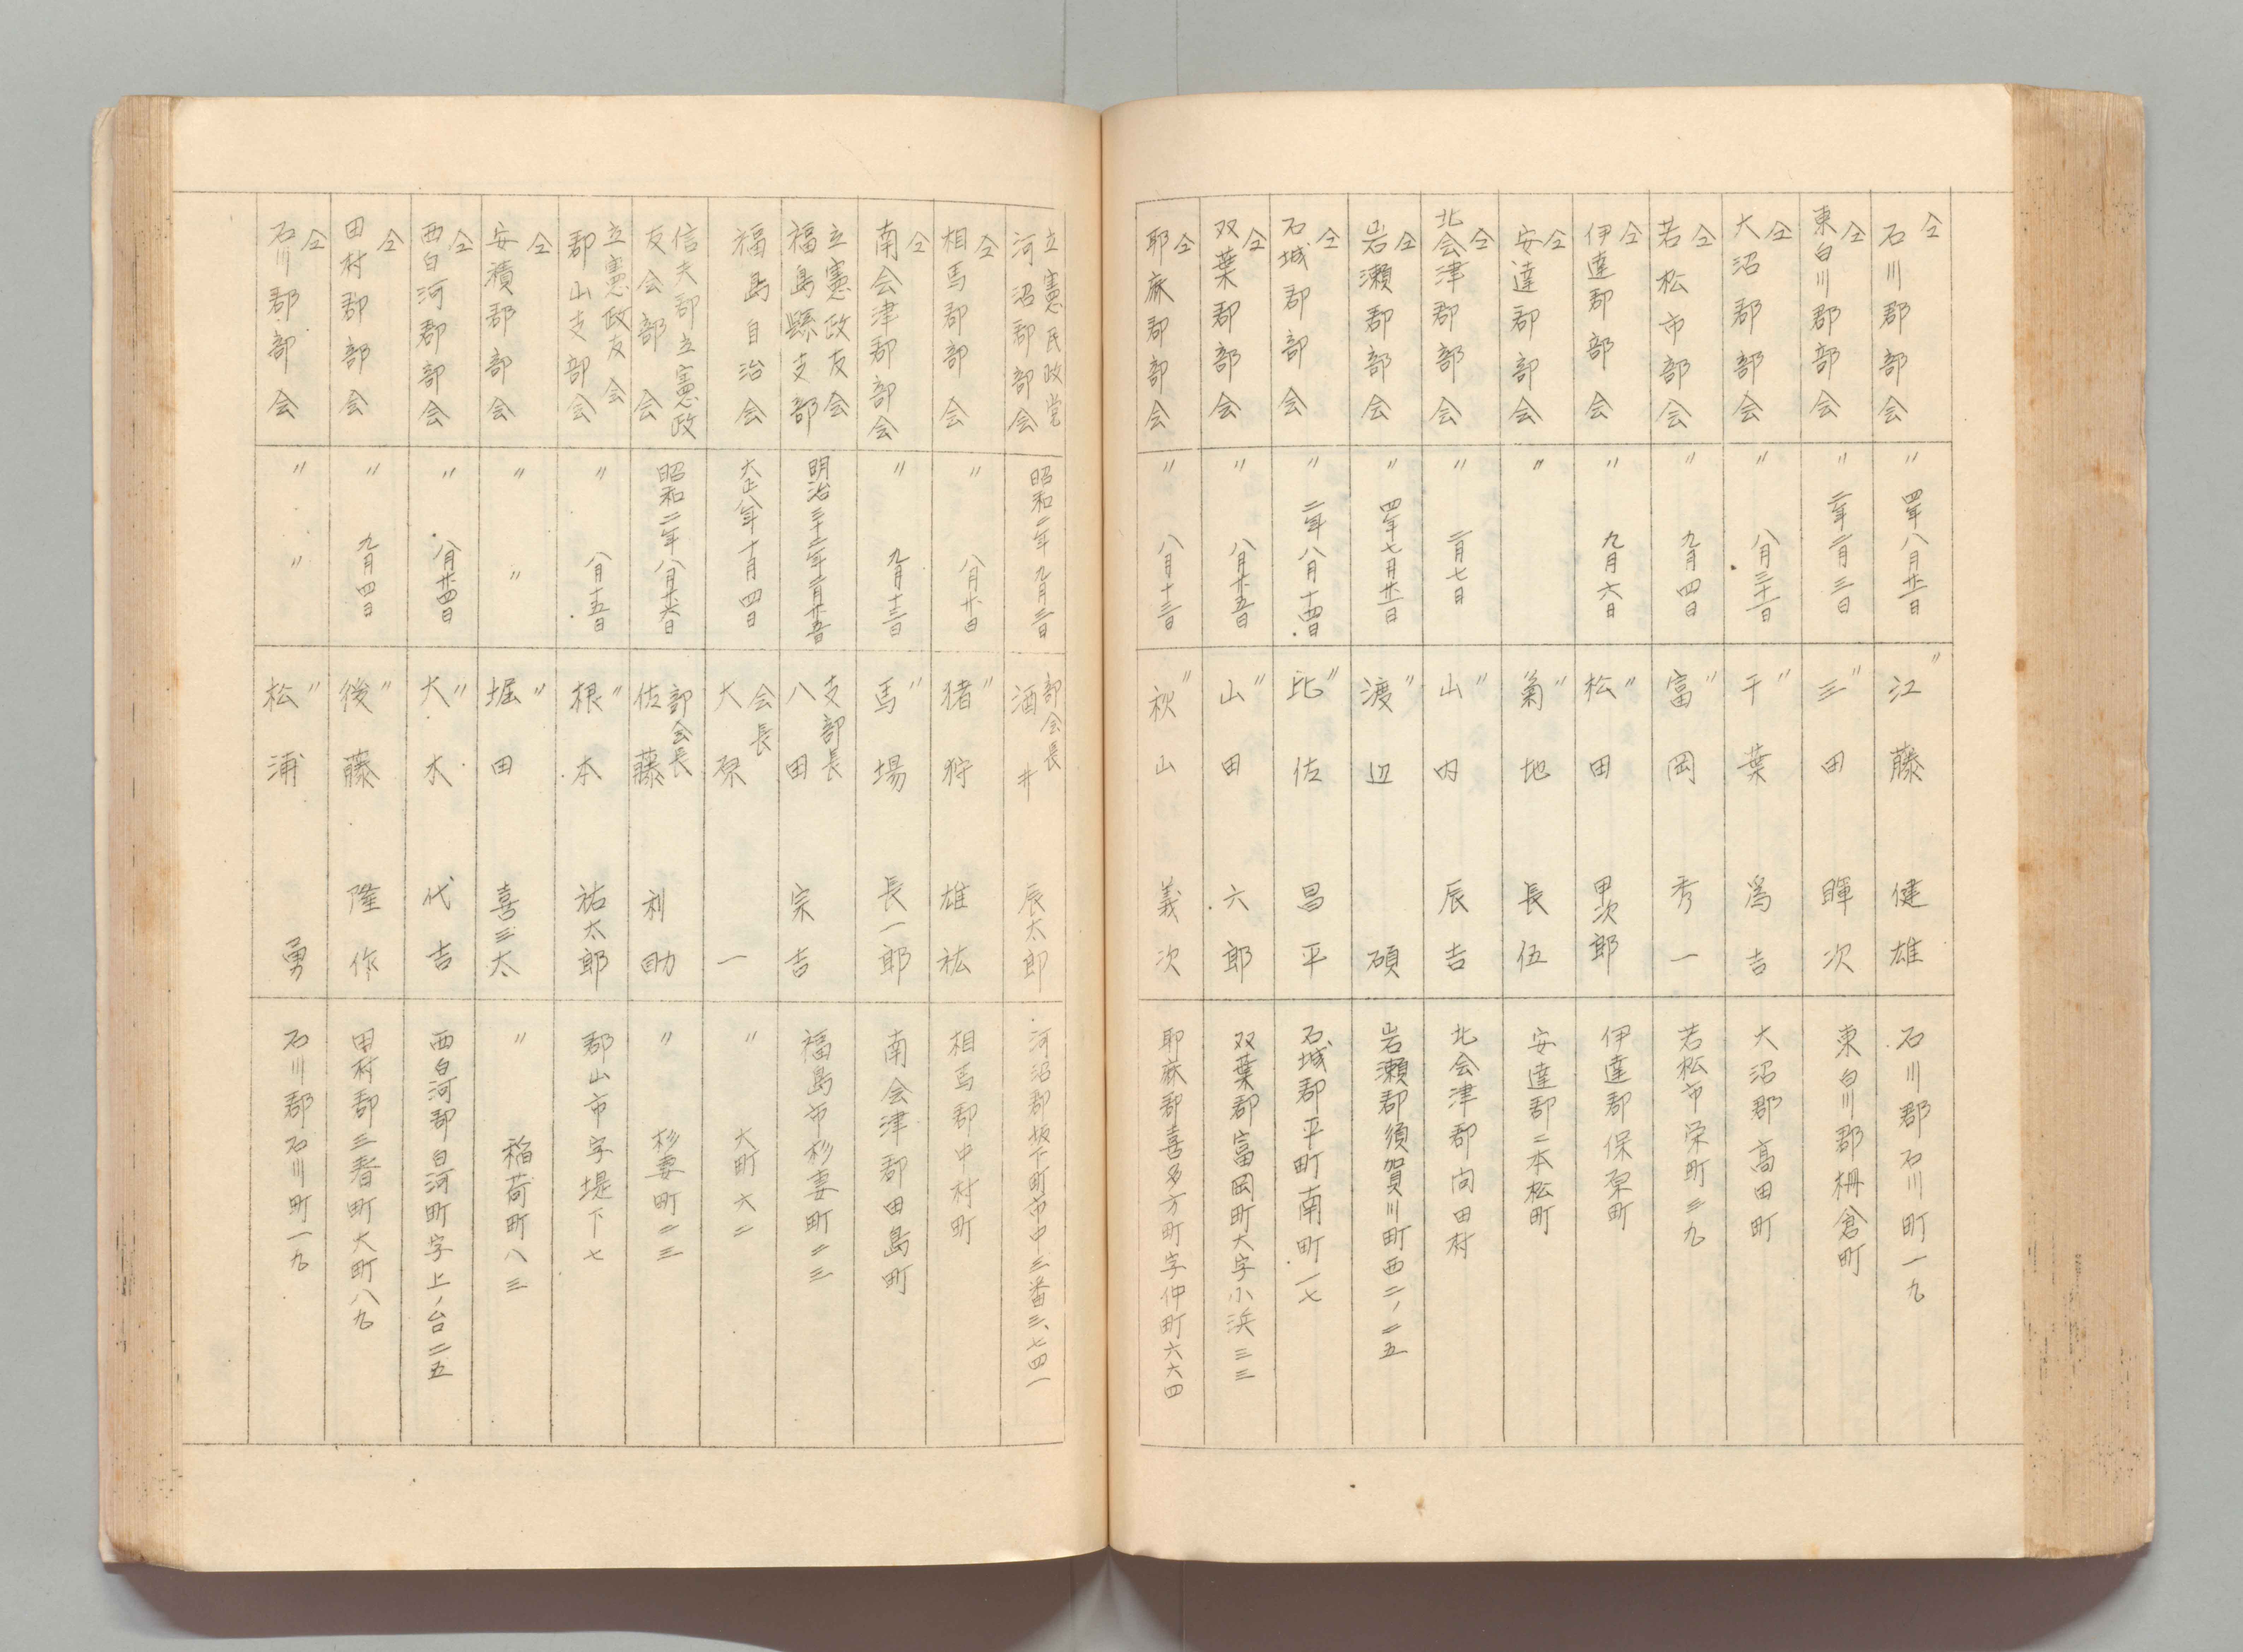 仝 石川郡部会 〃 四年八月廿一日 〃 江藤健雄 石川郡石川町一九
仝 東白川郡部会 〃 二年二月三日 〃 三田暉次 東白川郡棚倉町
仝 大沼郡部会 〃 八月三十一日 〃 千葉為吉 大沼郡高田町
仝 若松市部会 〃 九月四日 〃 富岡秀一 若松市栄町二九
仝 伊達郡部会 〃 九月六日 〃 松田甲次郎 伊達郡保原町
仝 安達郡部会 〃 〃 菊地長伍 安達郡二本松町
仝 北会津郡部会 〃 二月七日 〃 山内辰吉 北会津郡向田村
仝 岩瀬郡部会 〃 四年七月廿一日 〃 渡辺碩 岩瀬郡須賀川町西二ノ二五
仝 石城郡部会 〃 二年八月十四日 〃 比佐昌平 石城郡平町南町一七
仝 双葉郡部会 〃 八月廿五日 〃 山田六郎 双葉郡富岡町大字小浜三三
仝 耶麻郡部会 〃 八月十三日 〃 秋山義次 耶麻郡喜多方町字仲町六六四
立憲民政党河沼郡部会 昭和二年九月三日 部会長 酒井辰太郎 河沼郡坂下町市中三番三、七四一
仝 相馬郡部会 〃 八月廿日 〃 猪狩雄祐 相馬郡中村町
仝 南会津郡部会 〃 九月十三日 〃 馬場長一郎 南会津郡田島町
立憲政友会福島縣支部 明治三十二年二月廿五日 支部長 八田宗吉 福島市杉妻町二三
福島自治会 大正八年十月四日 会長 大原一 〃 大町六二
信夫郡立憲政友会部会 昭和二年八月廿六日 部会長 佐藤利助 〃 杉妻町二三
立憲政友会郡山支部会 〃 八月十五日 〃 根本祐太郎 郡山市字堤下七
仝 安積郡部会 〃 〃 〃 堀田喜三太 〃 稲荷町八三
仝 西白河郡部会 〃 八月廿四日 〃 大木代吉 西白河郡白河町字上ノ台二五
仝 田村郡部会 〃 九月四日 〃 後藤隆作 田村郡三春町大町八九
仝 石川郡部会 〃 〃 〃 松浦勇 石川郡石川町一九